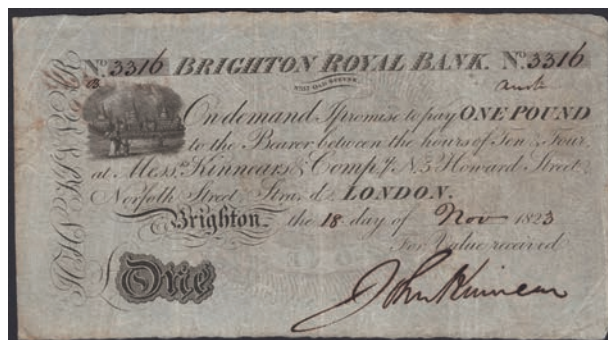 No. 3316 BRIGHTON ROYAL BANK. No. 3316
On demand I promise to pay ONE POUND
to the Bearer between the hours of Ten & Four,
at Messrs. Kinnears & Compy. N. 3 Howard Street,
Norfolk Street, Strand, LONDON.
Brighton, the 18 day of Nov 1823
For Value received
£One
John Kinnear